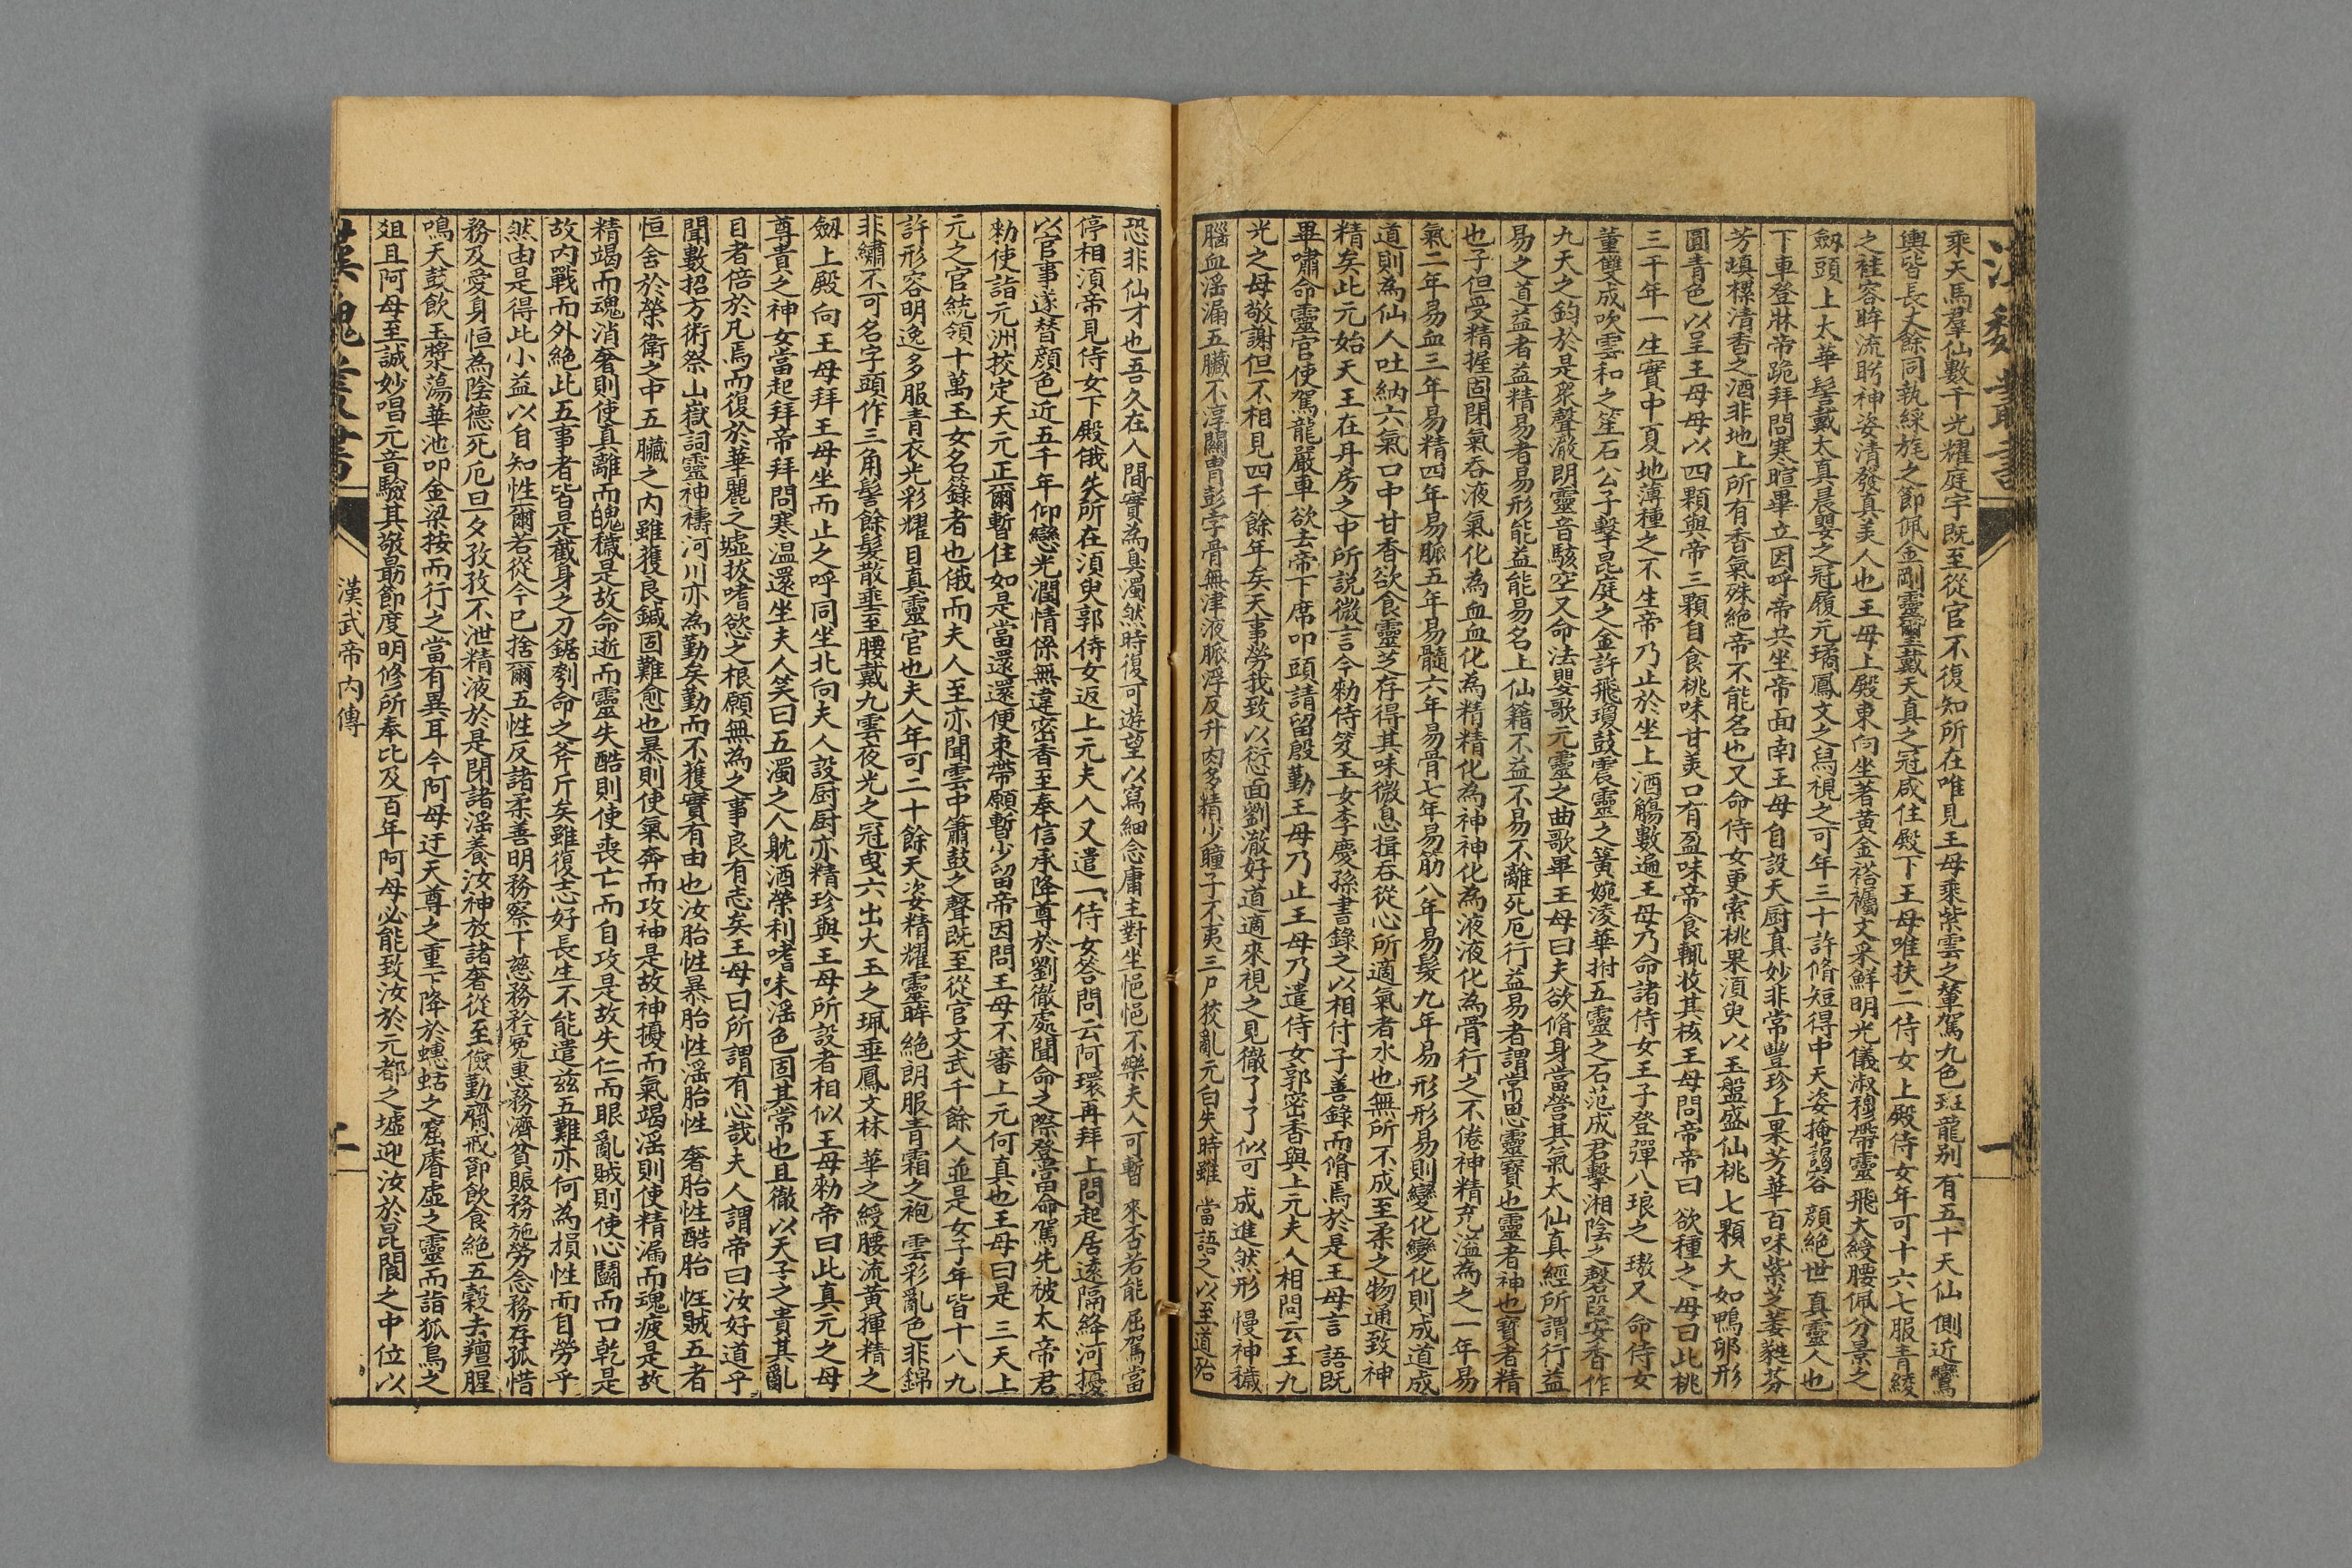 漢魏叢書
一
乘天馬羣仙數千光耀庭宇既至從官不復知所在唯見王母乘紫雲之輦駕九色斑龍别有五十天仙側近鸞
輿皆長丈餘同執綵旄之節佩金剛靈璽戴天真之冠咸住殿下王母唯扶二侍女上殿侍女年可十六七服青綾
之袿容眸流眄神姿清發真美人也王母上殿東向坐著黄金褡襡文采鮮明光儀淑穆帶靈飛大綬腰佩分景之
劒頭上太華髻戴太真晨嬰之冠履元璚鳳文之舄視之可年三十許脩短得中天姿掩藹容顔絶世真靈人也
下車登牀帝跪拜問寒暄畢立因呼帝共坐帝面南王母自設天厨真妙非常豐珍上果芳華百味紫芝萎蕤芬
芳填樏清香之酒非地上所有香氣殊絶帝不能名也又命侍女更索桃果湏臾以玉盤盛仙桃七顆大如鴨卵形
圓青色以呈王母母以四顆與帝三顆自食桃味甘美口有盈味帝食輒收其核王母問帝帝曰欲種之母曰此桃
三千年一生實中夏地薄種之不生帝乃止於坐上酒觴數遍王母乃命諸侍女王子登彈八琅之璈又命侍女
董雙成吹雲和之笙石公子擊昆庭之金許飛瓊鼓震靈之簧婉淩華拊五靈之石范成君擊湘陰之磬段安香作
九天之鈞於是衆聲澈朗靈音駭空又命法嬰歌元靈之曲歌畢王母曰夫欲脩身當營其氣太仙真經所謂行益
易之道益者益精易者易形能益能易名上仙籍不益不易不離死厄行益易者謂常思靈寶也靈者神也寶者精
也子但愛精握固閉氣吞液氣化為血血化為精精化為神神化為液液化為骨行之不倦神精充溢為之一年易
氣二年易血三年易精四年易脈五年易髓六年易骨七年易筋八年易髮九年易形形易則變化變化則成道成
道則為仙人吐納六氣口中甘香欲食靈芝存得其味微息揖吞從心所適氣者水也無所不成至柔之物通致神
精矣此元始天王在丹房之中所説微言今勑侍笈玉女李慶孫書錄之以相付子善錄而脩焉於是王母言語既
畢嘯命靈官使駕龍嚴車欲去帝下席叩頭請留殷勤王母乃止王母乃遣侍女郭密香與上元夫人相問云王九
光之母敬謝但不相見四千餘年矣天事勞我致以愆面劉澈好道適來視之見徹了了似可成進然形慢神穢
腦血滛漏五臟不淳關胄彭孛骨無津液脈浮反升肉多精少瞳子不夷三尸狡亂元白失時雖當語之以至道殆
恐非仙才也吾久在人間實為臭濁然時復可遊望以寫細念庸主對坐悒悒不樂夫人可暫來否若能屈駕當
停相湏帝見侍女下殿俄失所在湏臾郭侍女返上元夫人又遣一侍女答問云阿環再拜上問起居遠隔絳河擾
以官事遂替顔色近五千年仰戀光潤情係無違密香至奉信承降尊於劉徹處聞命之際登當命駕先被太帝君
勑使詣元洲挍定天元正爾暫住如是當還還便束帶願暫少留帝因問王母不審上元何真也王母曰是三天上
元之官統領十萬玉女名籙者也俄而夫人至亦聞雲中簫鼓之聲既至從官文武千餘人並是女子年皆十八九
許形容明逸多服青衣光彩耀目真靈官也夫人年可二十餘天姿精耀靈眸絶朗服青霜之袍雲彩亂色非錦
非繡不可名字頭作三角髻餘髮散垂至腰戴九雲夜光之冠曳六出火玉之珮垂鳳文林華之綬腰流黄揮精之
劒上殿向王母拜王母坐而止之呼同坐北向夫人設厨厨亦精珍與王母所設者相似王母勑帝曰此真元之母
尊貴之神女當起拜帝拜問寒温還坐夫人笑曰五濁之人躭酒榮利嗜味滛色固其常也且徹以天子之貴其亂
目者倍於凡焉而復於華麗之墟拔嗜慾之根願無為之事良有志矣王母曰所謂有心哉夫人謂帝曰汝好道乎
聞數招方術祭山嶽詞靈神禱河川亦為勤矣勤而不獲實有由也汝胎性暴胎性滛胎性奢胎性酷胎性賊五者
恒舍於榮衛之中五臟之内雖獲良鍼固難愈也暴則使氣奔而攻神是故神擾而氣竭滛則使精漏而魂疲是故
精竭而魂消奢則使真離而魄穢是故命逝而靈失酷則使喪亡而自攻是故失仁而眼亂賊則使心鬬而口乾是
故内戰而外絶此五事者皆是截身之刀鋸刳命之斧斤矣雖復志好長生不能遣兹五難亦何為損性而自勞乎
然由是得此小益以自知性爾若從今已捨爾五性反諸柔善明務察下慈務矜冤惠務濟貧賑務施勞念務存孤惜
務及愛身恒為陰德死厄旦夕孜孜不泄精液於是閉諸滛養汝神放諸奢從至儉勤齋戒節飲食絶五穀去羶腥
鳴天鼓飲玉漿蕩華池叩金梁按而行之當有異耳今阿母迂天尊之重下降於蟪蛄之窟廥虚之靈而詣狐鳥之
爼且阿母至誠妙唱元音驗其敬勗節度明修所奉比及百年阿母必能致汝於元都之墟迎汝於昆閬之中位以
漢魏叢書
漢武帝内傳
二